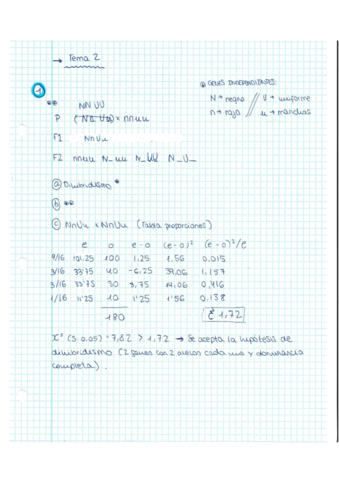 → Tema 2
1
* GENES INDEPENDIENTES
N → negro // U → uniforme
n → rojo // u → manchas
** NN UU
P (NN UU) x nnuu
F1 NnUu
F2 nnuu N_uu N_UU N_U_
a Dihibridismo *
b **
c NnUu x NnUu (Tabla proporciones)
e o e-o (e-o)² (e-o)²/e
9/16 101.25 100 1.25 1.56 0.015
3/16 33'75 40 -6.25 39.06 1.157
3/16 33'75 30 3,75 14,06 0,416
1/16 11'25 10 1'25 1'56 0.138
180 1,72
X² (3 0.05) = 7,82 > 1,72 → Se acepta la hipótesis de
dihibridismo (2 genes con 2 alelos cada uno y dominancia
completa).